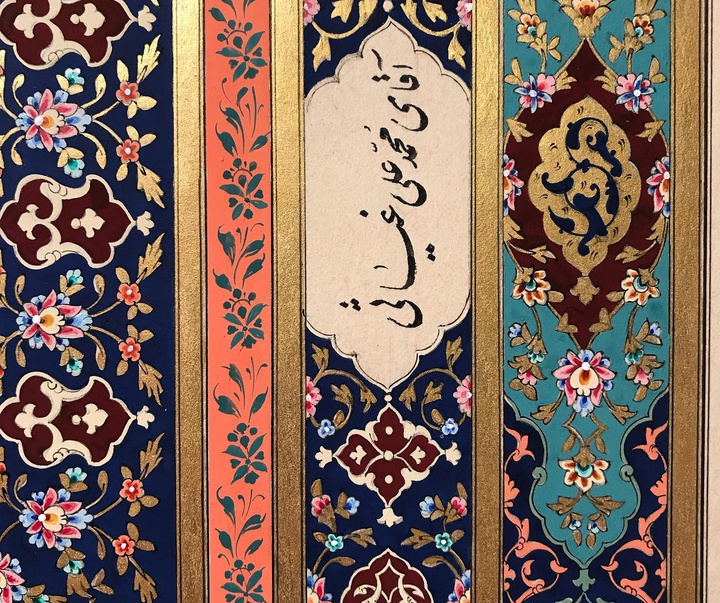 آقای محمد علی غیاثی